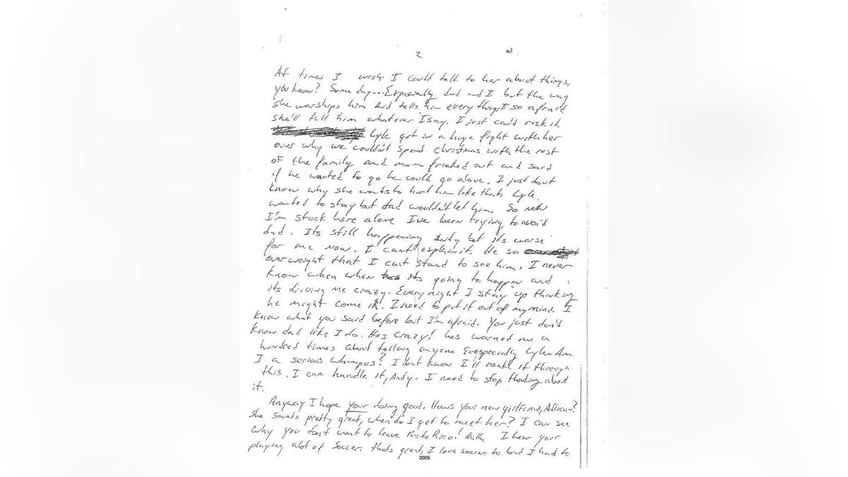 2
At times I wish I could talk to her about things,
you know? Some day... Especially dad and I but the way
she worships him and tells him everything I so afraid
she'll tell him whatever I say. I just can't risk it
Lyle got in a huge fight with her
over why we couldn't spend Christmas with the rest
of the family and mom freaked out and said
if he wanted to go he could go alone. I just don't
know why she wants to hurt him like that. Lyle
wanted to stay but dad wouldn't let him. So now
I'm stuck here alone I've been trying to avoid
dad. Its still happening Andy but its worse
for me now. I can't explain it. He so
overweight that I can't stand to see him. I never
know when when its going to happen and
its driving me crazy. Every night I stay up thinking
he might come in. I need to put it out of my mind. I
know what you said before but I'm afraid. You just don't
know dad like I do. Hes crazy! hes warned me a
hundred times about telling anyone especially Lyle. Am
I a serious whimpus? I don't know I'll make it through
this. I can handle it, Andy. I need to stop thinking about
it.
Anyway I hope your doing good. Hows your new girlfriend, Allison?
She sounds pretty great, when do I get to meet her? I can see
why you don't want to leave Porto Rico! I hear your
playing alot of Soccer. thats great, I love soccer to but I had to
0005